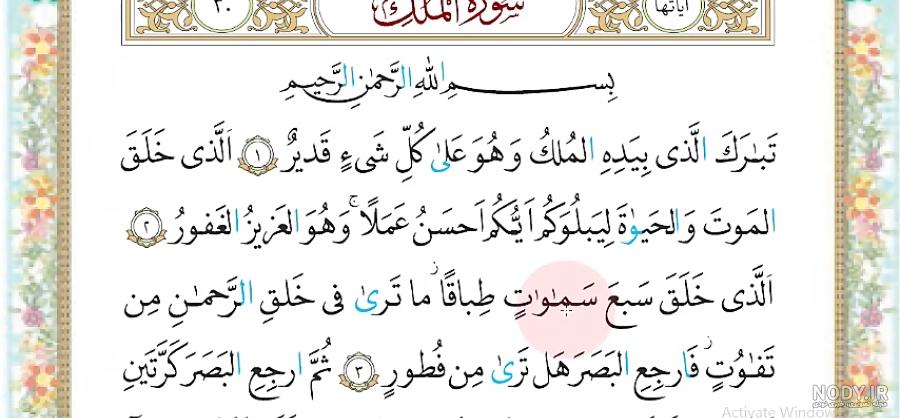 آیاتها ٣٠
سورة الملك
بِسـمِ اللّٰهِ الرَّحمٰنِ الرَّحيمِ
تَبـٰرَكَ الَّذى بِيَدِهِ المُلكُ وَ هُوَ عَلىٰ كُلِّ شَىءٍ قَديرٌ ١ اَلَّذى خَلَقَ
المَوتَ وَ الحَيـوٰةَ لِيَبلُوَكُم اَيُّكُم اَحسَنُ عَمَلًا ۚ وَ هُوَ العَزيزُ الغَفورُ ٢
اَلَّذى خَلَقَ سَبعَ سَمـٰوٰتٍ طِباقًا ۖ ما تَرىٰ فى خَلقِ الرَّحمـٰنِ مِن
تَفـٰوُتٍ ۖ فَارجِعِ البَصَرَ هَل تَرىٰ مِن فُطورٍ ٣ ثُمَّ ارجِعِ البَصَرَ كَرَّتَينِ
NODY.IR
Activate Window